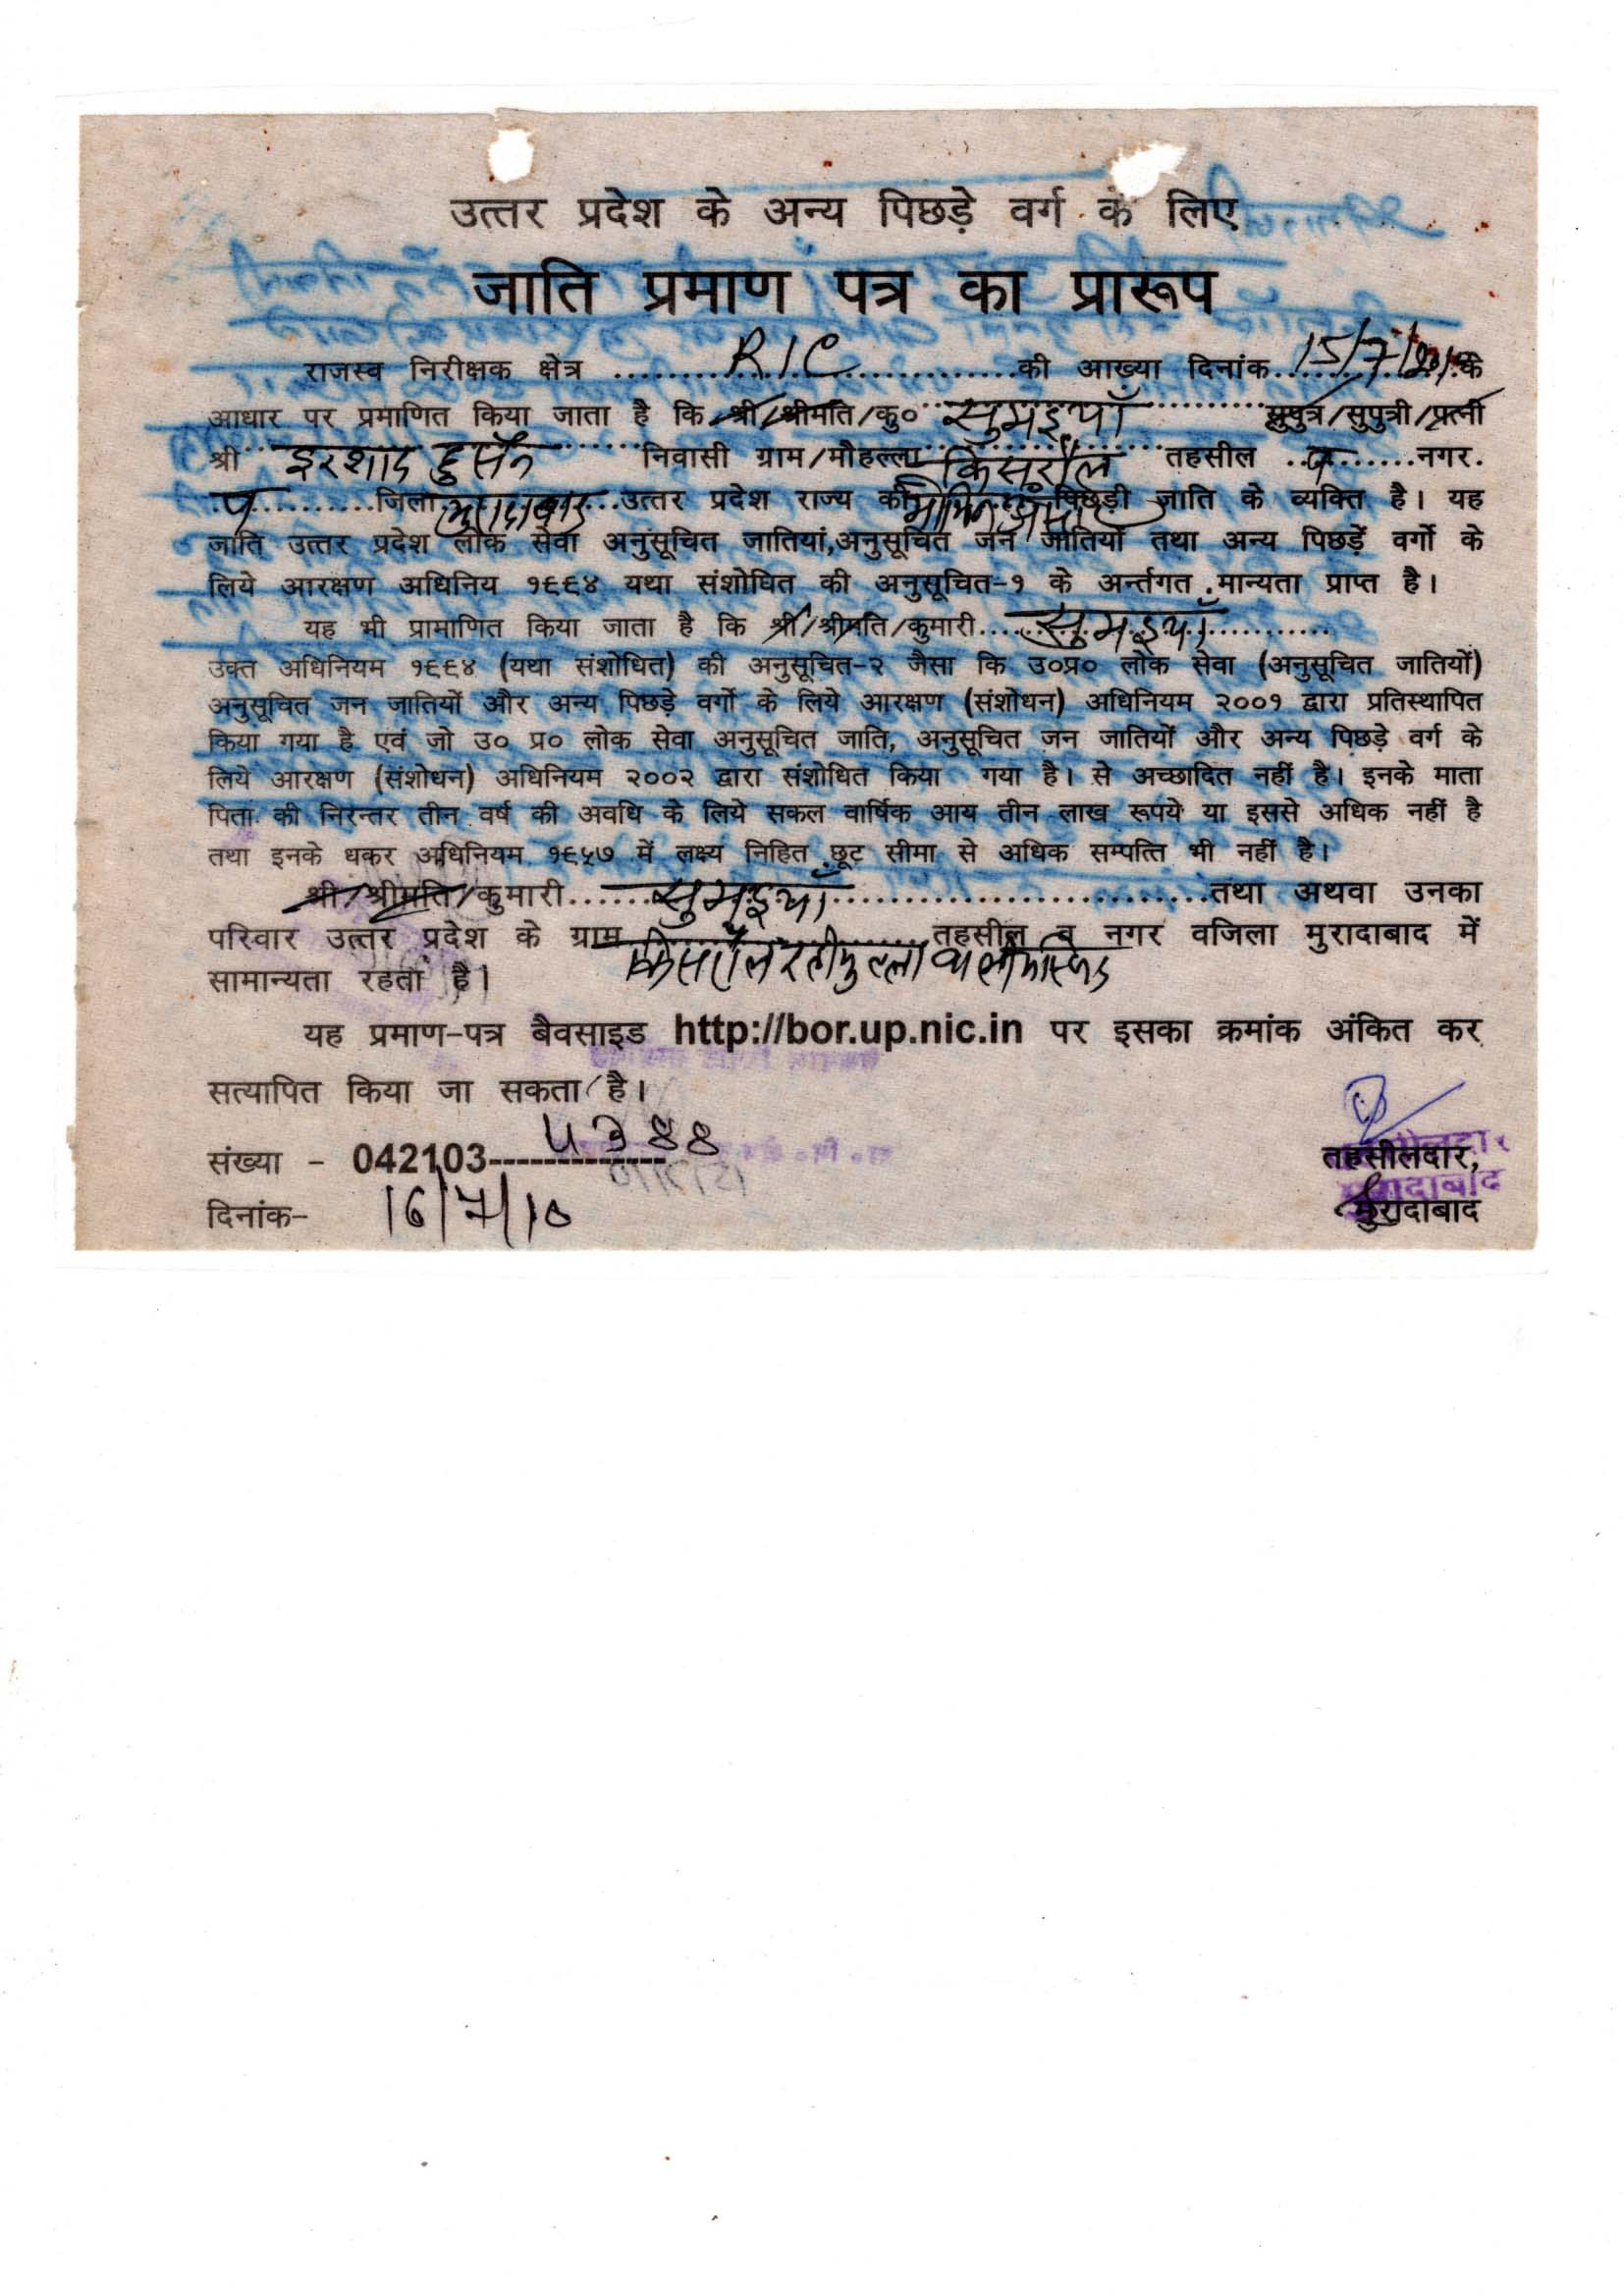 उत्तर प्रदेश के अन्य पिछड़े वर्ग के लिए
जाति प्रमाण पत्र का प्रारूप
राजस्व निरीक्षक क्षेत्र ........R/C........की आख्या दिनांक..15/7/2010..के
आधार पर प्रमाणित किया जाता है कि श्री/श्रीमति/कु० सुमइयाँ सुपुत्र/सुपुत्री/पत्नी
श्री इरशाद हुसैन निवासी ग्राम/मौहल्ला किसरौल तहसील ..व..नगर.
व.........जिला मुरादाबाद उत्तर प्रदेश राज्य की मोमिन अंसार पिछड़ी जाति के व्यक्ति है। यह
जाति उत्तर प्रदेश लोक सेवा अनुसूचित जातियां,अनुसूचित जन जातियों तथा अन्य पिछड़ें वर्गो के
लिये आरक्षण अधिनिय १९९४ यथा संशोधित की अनुसूचित-१ के अर्न्तगत मान्यता प्राप्त है।
यह भी प्रामाणित किया जाता है कि श्री/श्रीमति/कुमारी....सुमइयाँ....
उक्त अधिनियम १९९४ (यथा संशोधित) की अनुसूचित-२ जैसा कि उ०प्र० लोक सेवा (अनुसूचित जातियों)
अनुसूचित जन जातियों और अन्य पिछड़े वर्गो के लिये आरक्षण (संशोधन) अधिनियम २००१ द्वारा प्रतिस्थापित
किया गया है एवं जो उ० प्र० लोक सेवा अनुसूचित जाति, अनुसूचित जन जातियों और अन्य पिछड़े वर्ग के
लिये आरक्षण (संशोधन) अधिनियम २००२ द्वारा संशोधित किया गया है। से अच्छादित नहीं है। इनके माता
पिता की निरन्तर तीन वर्ष की अवधि के लिये सकल वार्षिक आय तीन लाख रूपये या इससे अधिक नहीं है
तथा इनके धकर अधिनियम १९५७ में लक्ष्य निहित छूट सीमा से अधिक सम्पत्ति भी नहीं है।
श्री/श्रीमति/कुमारी......सुमइयाँ......तथा अथवा उनका
परिवार उत्तर प्रदेश के ग्राम किसरौल तहसील व नगर वजिला मुरादाबाद में
सामान्यता रहता है।
यह प्रमाण-पत्र बैवसाइड http://bor.up.nic.in पर इसका क्रमांक अंकित कर
सत्यापित किया जा सकता है।
संख्या - 042103-५३४४
तहसीलदार,
दिनांक- 16/7/10
मुरादाबाद